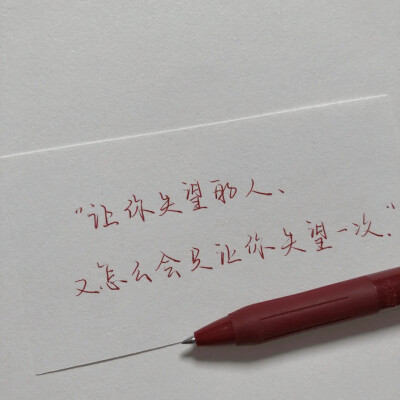 “让你失望的人、
又怎么会只让你失望一次.”